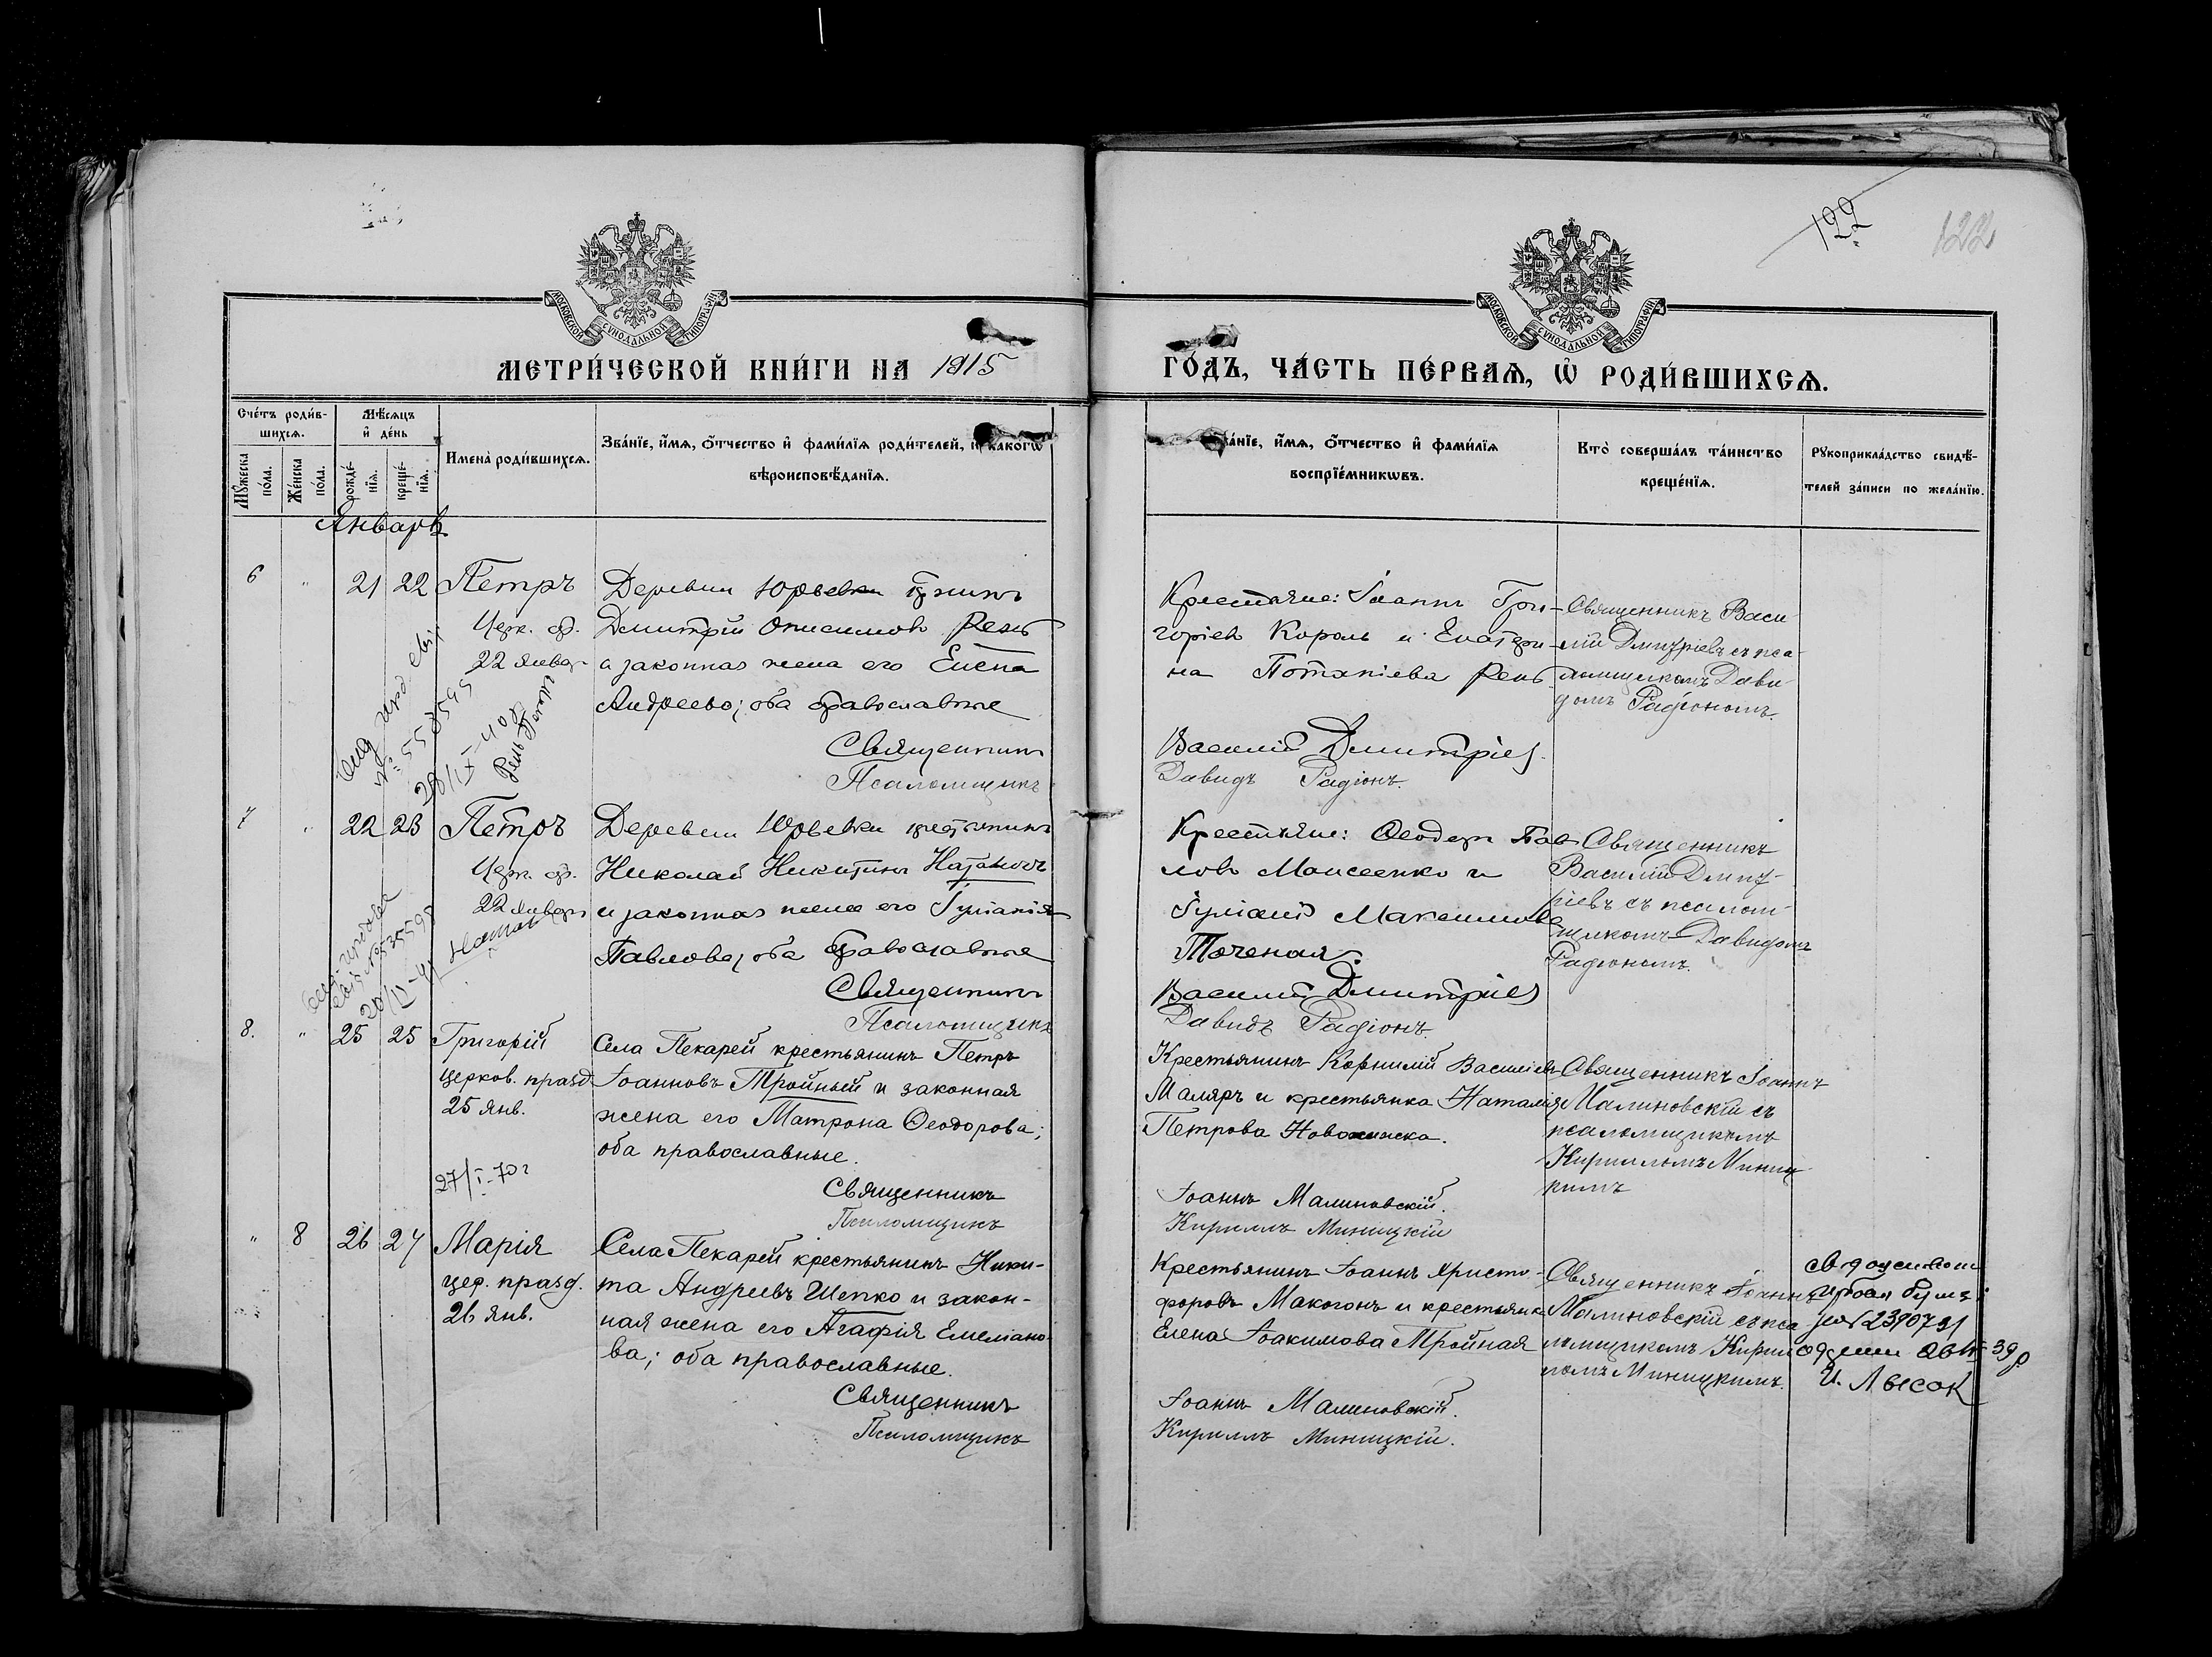 122
122
МОСКОВСКОЙ СѴНОДАЛЬНОЙ ТИПОГРАФІИ
МОСКОВСКОЙ СѴНОДАЛЬНОЙ ТИПОГРАФІИ
МЕТРИ́ЧЕСКОЙ КНИ́ГИ НА 1915
ГО́ДЪ, ЧА́СТЬ ПЕ́РВАѦ, Ѡ҆ РОДИ́ВШИХСѦ.
Сче́тъ роди́в-
шихсѧ.
Мѣ́сѧцъ
и҆ де́нь
Мꙋ́жеска
по́ла.
Же́нска
по́ла.
рожде́-
нїѧ.
креще́-
нїѧ.
Имена̀ роди́вшихсѧ.
Зва́нїе, и҆́мѧ, ѻ҆́тчество и҆ фами́лїѧ роди́телей, и҆ како́гѡ
вѣроисповѣ́данїѧ.
а́нїе, и҆́мѧ, ѻ҆́тчество и҆ фами́лїѧ
воспрїе́мникѡвъ.
Кто̀ соверша́лъ та́инство
креще́нїѧ.
Рꙋкоприкла́дство свидѣ́-
телей за́писи по жела́нїю.
Январь
6 " 21 22 Петръ
Церк. ср.
22 Январ
№ 558595
20/IX-40 г
Рень
Деревни Юрьевки
Дмитрій Онисимовъ Рень
а законная жена его Елена
Андреева; оба православные
Священникъ
Псаломщикъ
Крестьяне: Іоаннъ Гри-
горіевъ Король и Екатери-
на Потапіева Рень
Василій Дмитріев
Давидъ Радіонъ.
Священникъ Васи-
лій Дмитріевъ съ пса-
ломщикомъ Дави-
домъ Радіономъ.
7 " 22 23 Петръ
Церк. ср.
22 Январ
Деревни Юрьевки крестьянинъ
Николай Никитинъ
и законная жена его Іуліанія
Павлова; оба православные
Священникъ
Псаломщикъ
Крестьяне: Ѳеодоръ Пав-
ловъ Моисеенко и
Іуліанія Максимова
Точеная.
Василій Дмитріев
Давидъ Радіонъ.
Священникъ
Василій Дмит-
ріевъ съ псалом-
щикомъ Давидомъ
Радіономъ.
8. " 25 25 Григорій
церков. празд.
25 Янв.
27/I-70 г
Села Пекарей крестьянинъ Петръ
Іоанновъ Тройный и законная
жена его Матрона Ѳеодорова;
оба православные.
Священникъ
Псаломщикъ
Крестьянинъ Корнилій Василіевъ
Маляръ и крестьянка Наталія
Петрова
Іоаннъ Малиновскій.
Кириллъ Миницкій
Священникъ Іоаннъ
Малиновскій съ
псаломщикомъ
Кирилломъ Миниц-
кимъ
" 8 26 27 Марія
цер. празд.
26 Янв.
Села Пекарей крестьянинъ Ники-
та Андреевъ Шепко и закон-
ная жена его Агафія Емеліано-
ва; оба православные.
Священникъ
Псаломщикъ
Крестьянинъ Іоаннъ Христо-
форовъ Макогонъ и крестьянка
Елена Іоакимова Тройная
Іоаннъ Малиновскій.
Кириллъ Миницкій.
Священникъ Іоаннъ
Малиновскій съ пса-
ломщикомъ Кирил-
ломъ Миницкимъ.
2390791
39 р
И. Лысак